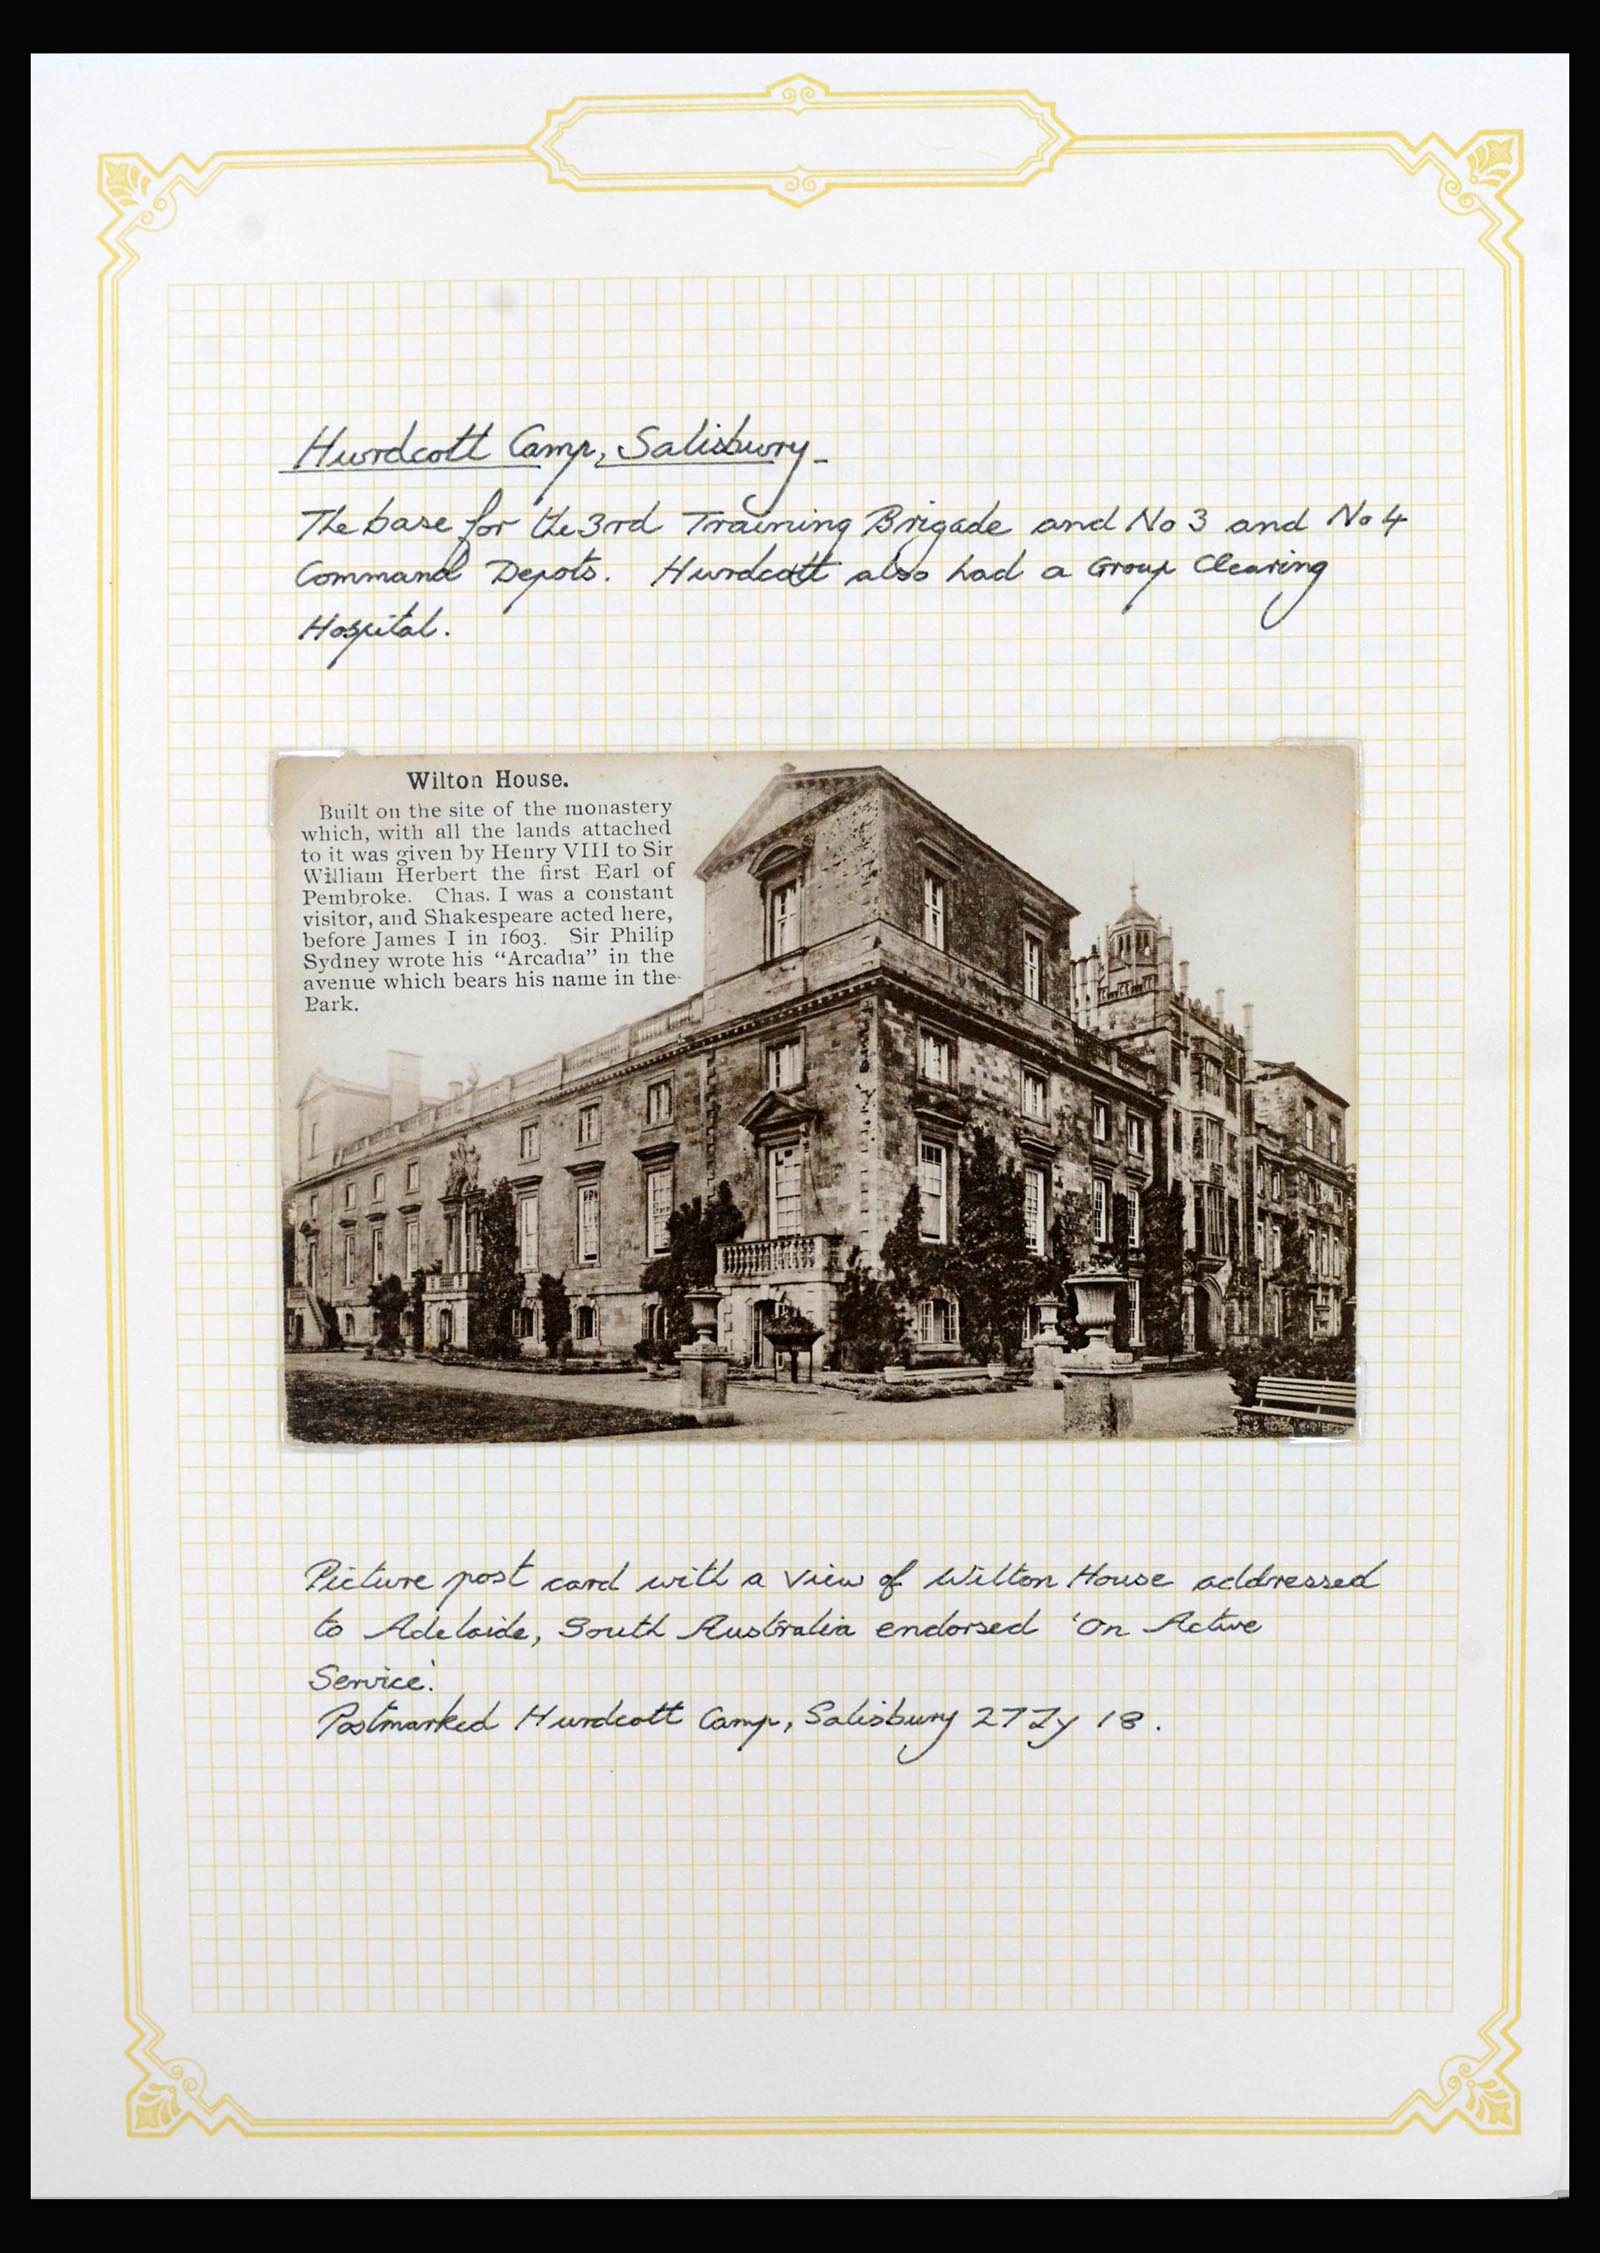 Hurdcott Camp, Salisbury_
The base for the 3rd Training Brigade and No 3 and No 4
Command Depots. Hurdcott also had a Group Clearing
Hospital.
Wilton House.
Built on the site of the monastery
which, with all the lands attached
to it was given by Henry VIII to Sir
William Herbert the first Earl of
Pembroke. Chas. I was a constant
visitor, and Shakespeare acted here,
before James I in 1603. Sir Philip
Sydney wrote his “Arcadia” in the
avenue which bears his name in the
Park.
Picture post card with a view of Wilton House addressed
to Adelaide, South Australia endorsed 'On Active
Service'.
Postmarked Hurdcott Camp, Salisbury 27 Jy 18.